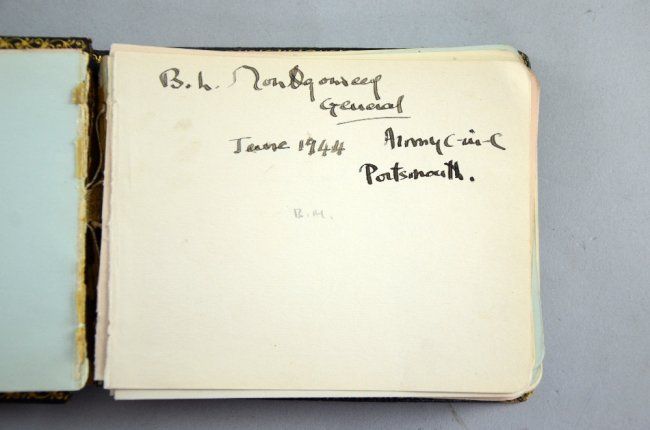 B. L. Montgomery
General
June 1944 Army C-in-C
Portsmouth.
B.M.